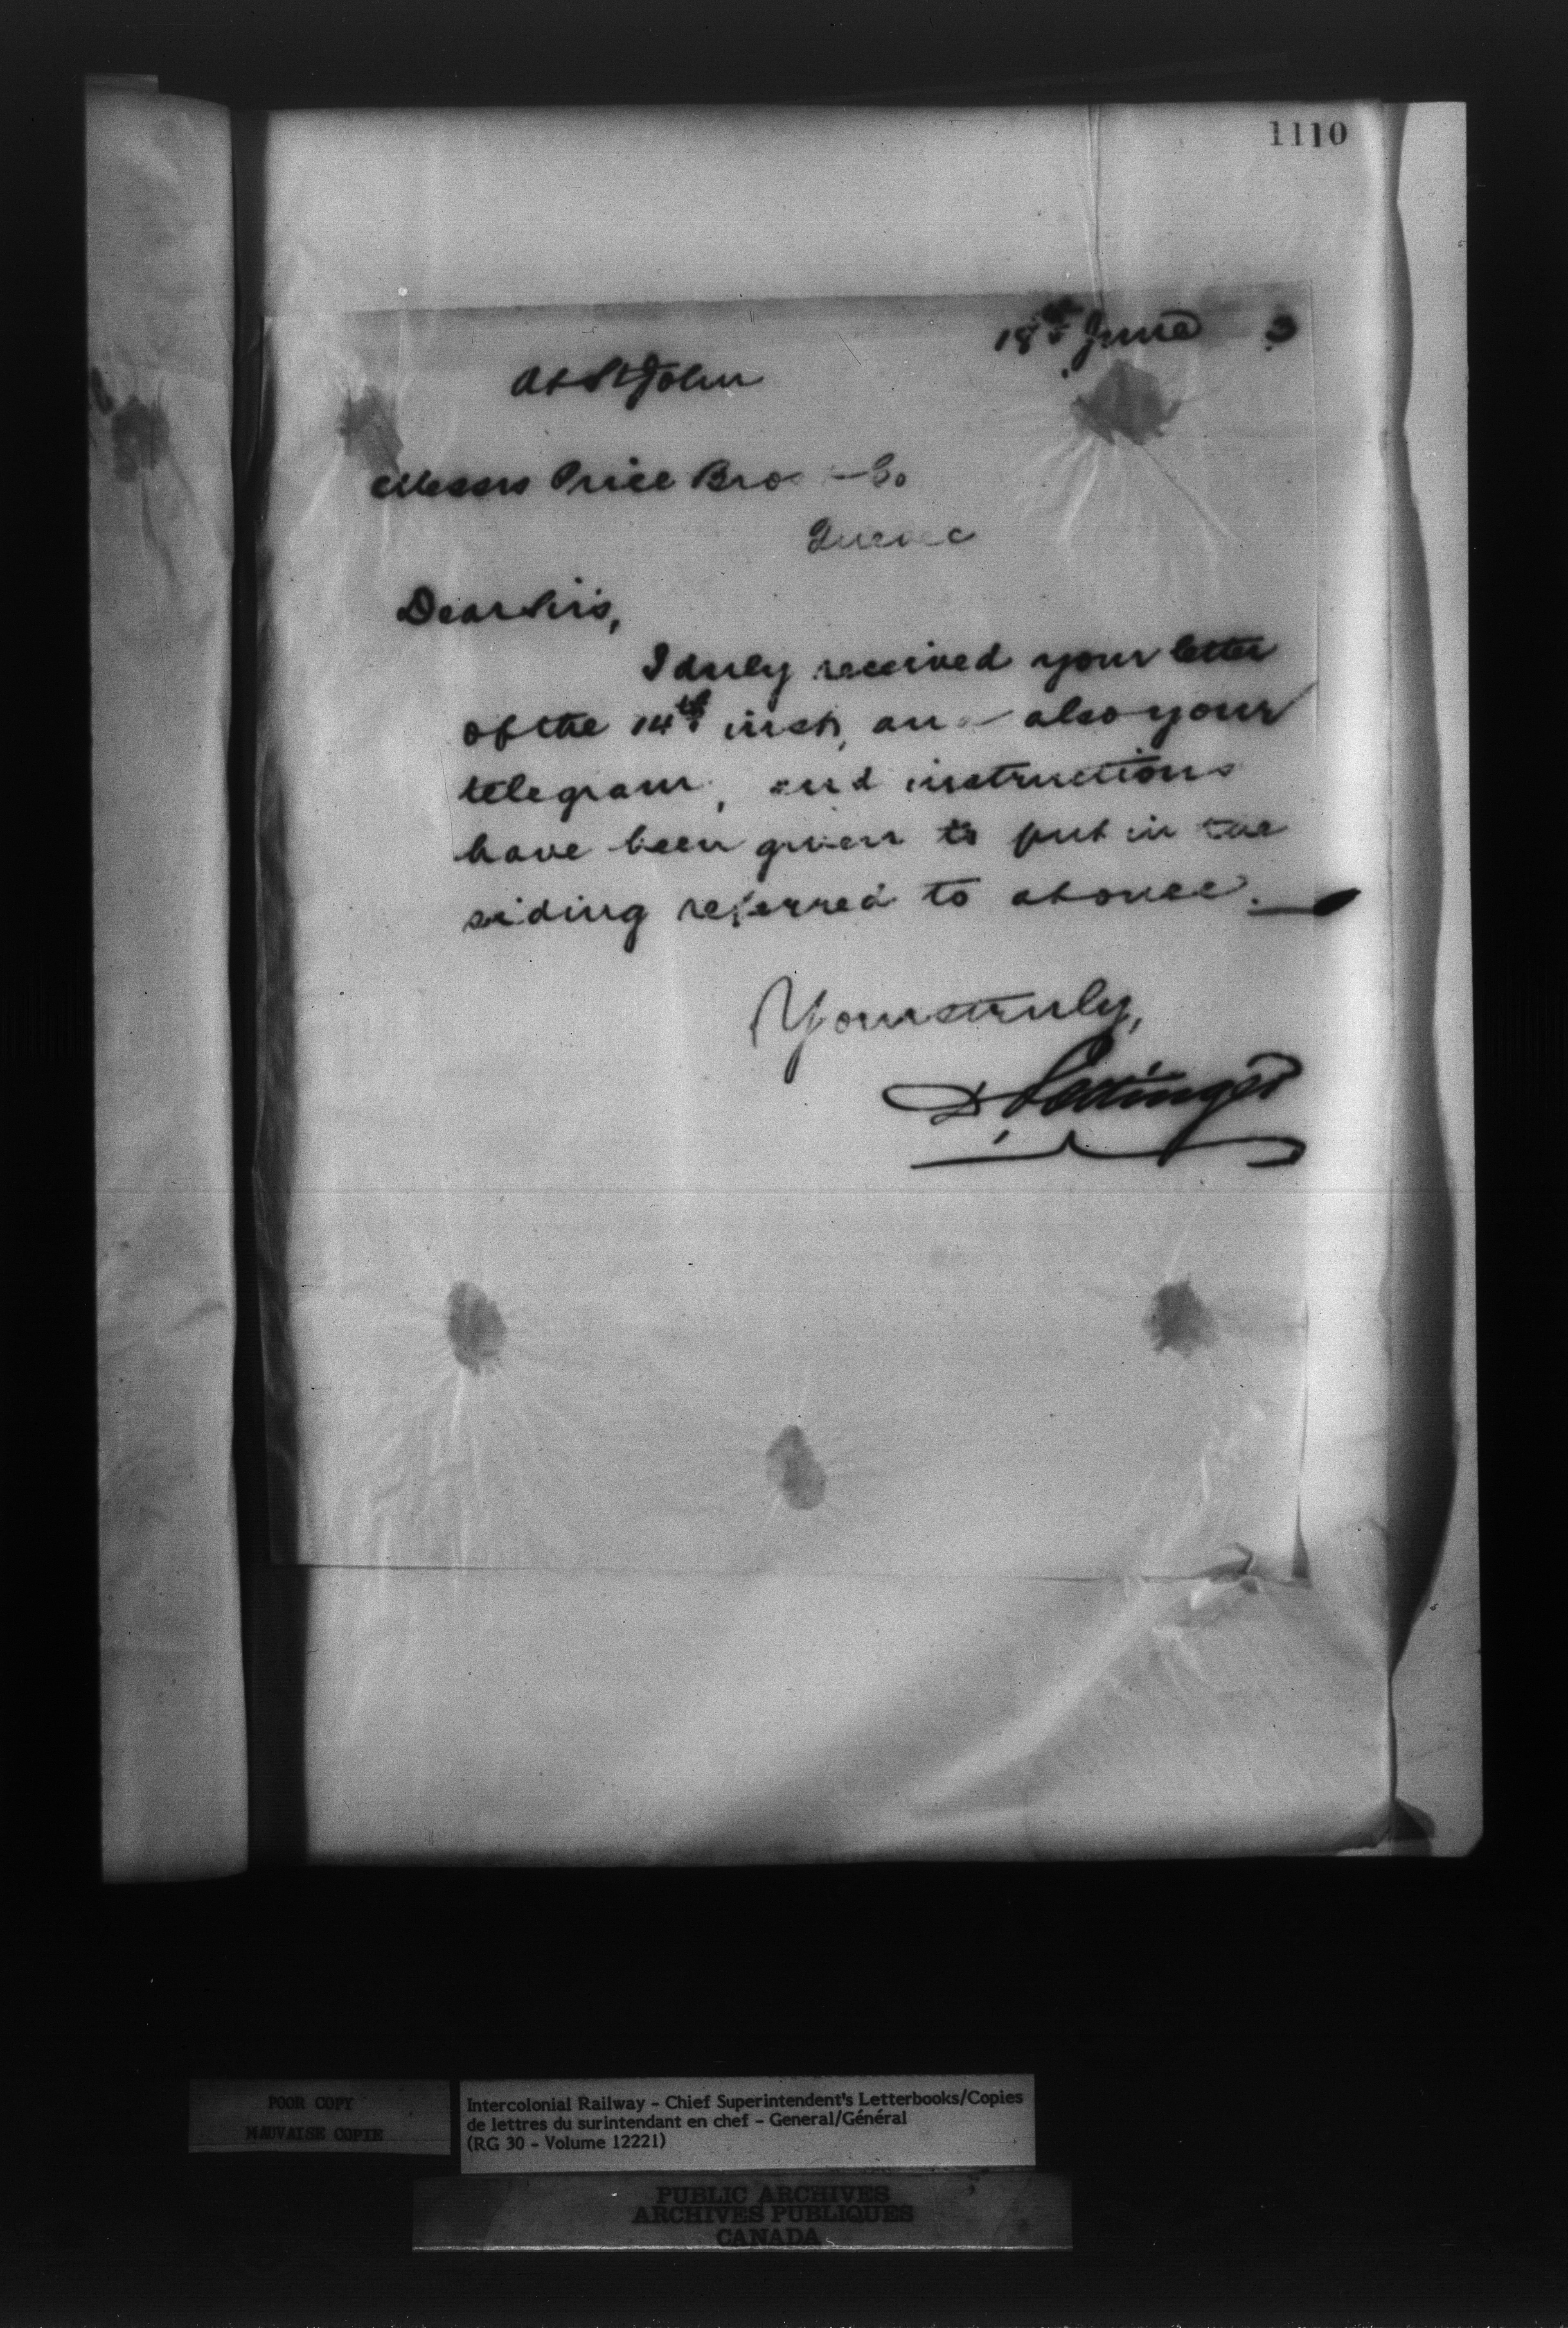 1110
18th June 3
At St John
Messrs Price Bros & Co
Quebec
Dear Sirs,
I duly received your letter
of the 14th inst, and also your
telegram, and instructions
have been given to put in the
siding referred to above.
Yours truly,
D Pottinger
POOR COPY
MAUVAISE COPIE
Intercolonial Railway - Chief Superintendent's Letterbooks/Copies
de lettres du surintendant en chef - General/Général
(RG 30 - Volume 12221)
PUBLIC ARCHIVES
ARCHIVES PUBLIQUES
CANADA